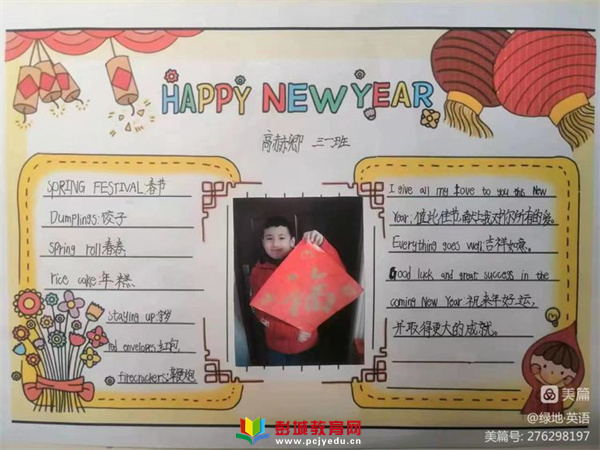 HAPPY NEW YEAR
三一班
SPRING FESTIVAL:春节
Dumplings:饺子
Spring roll:春卷
rice cake:年糕
staying up:守岁
red envelopes:红包
firecrackers:鞭炮
福
I give all my love to you this New
Year.值此佳节,献上我对你所有的爱。
Everything goes well.吉祥如意。
Good luck and great success in the
coming New Year 祝来年好运,
并取得更大的成就。
美篇
@绿地·英语
美篇号: 276298197
彭城教育网
www.pcjyedu.cn